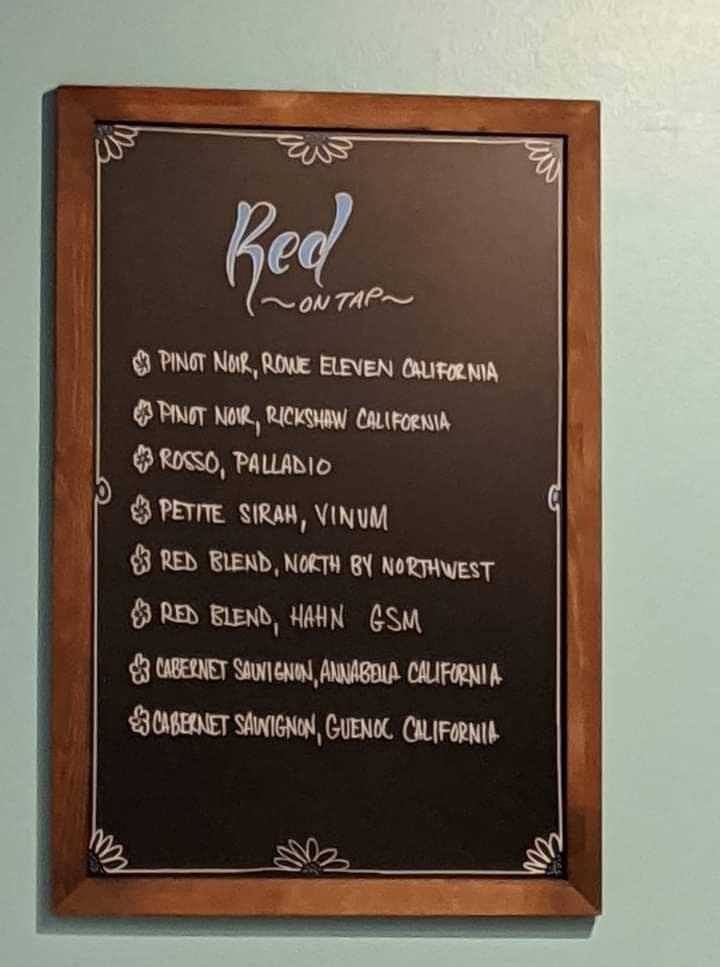 Red
~ON TAP~
PINOT NOIR, ROWE ELEVEN CALIFORNIA
PINOT NOIR, RICKSHAW CALIFORNIA
ROSSO, PALLADIO
PETITE SIRAH, VINUM
RED BLEND, NORTH BY NORTHWEST
RED BLEND, HAHN GSM
CABERNET SAUVIGNON, ANNABELLA CALIFORNIA
CABERNET SAUVIGNON, GUENOC CALIFORNIA